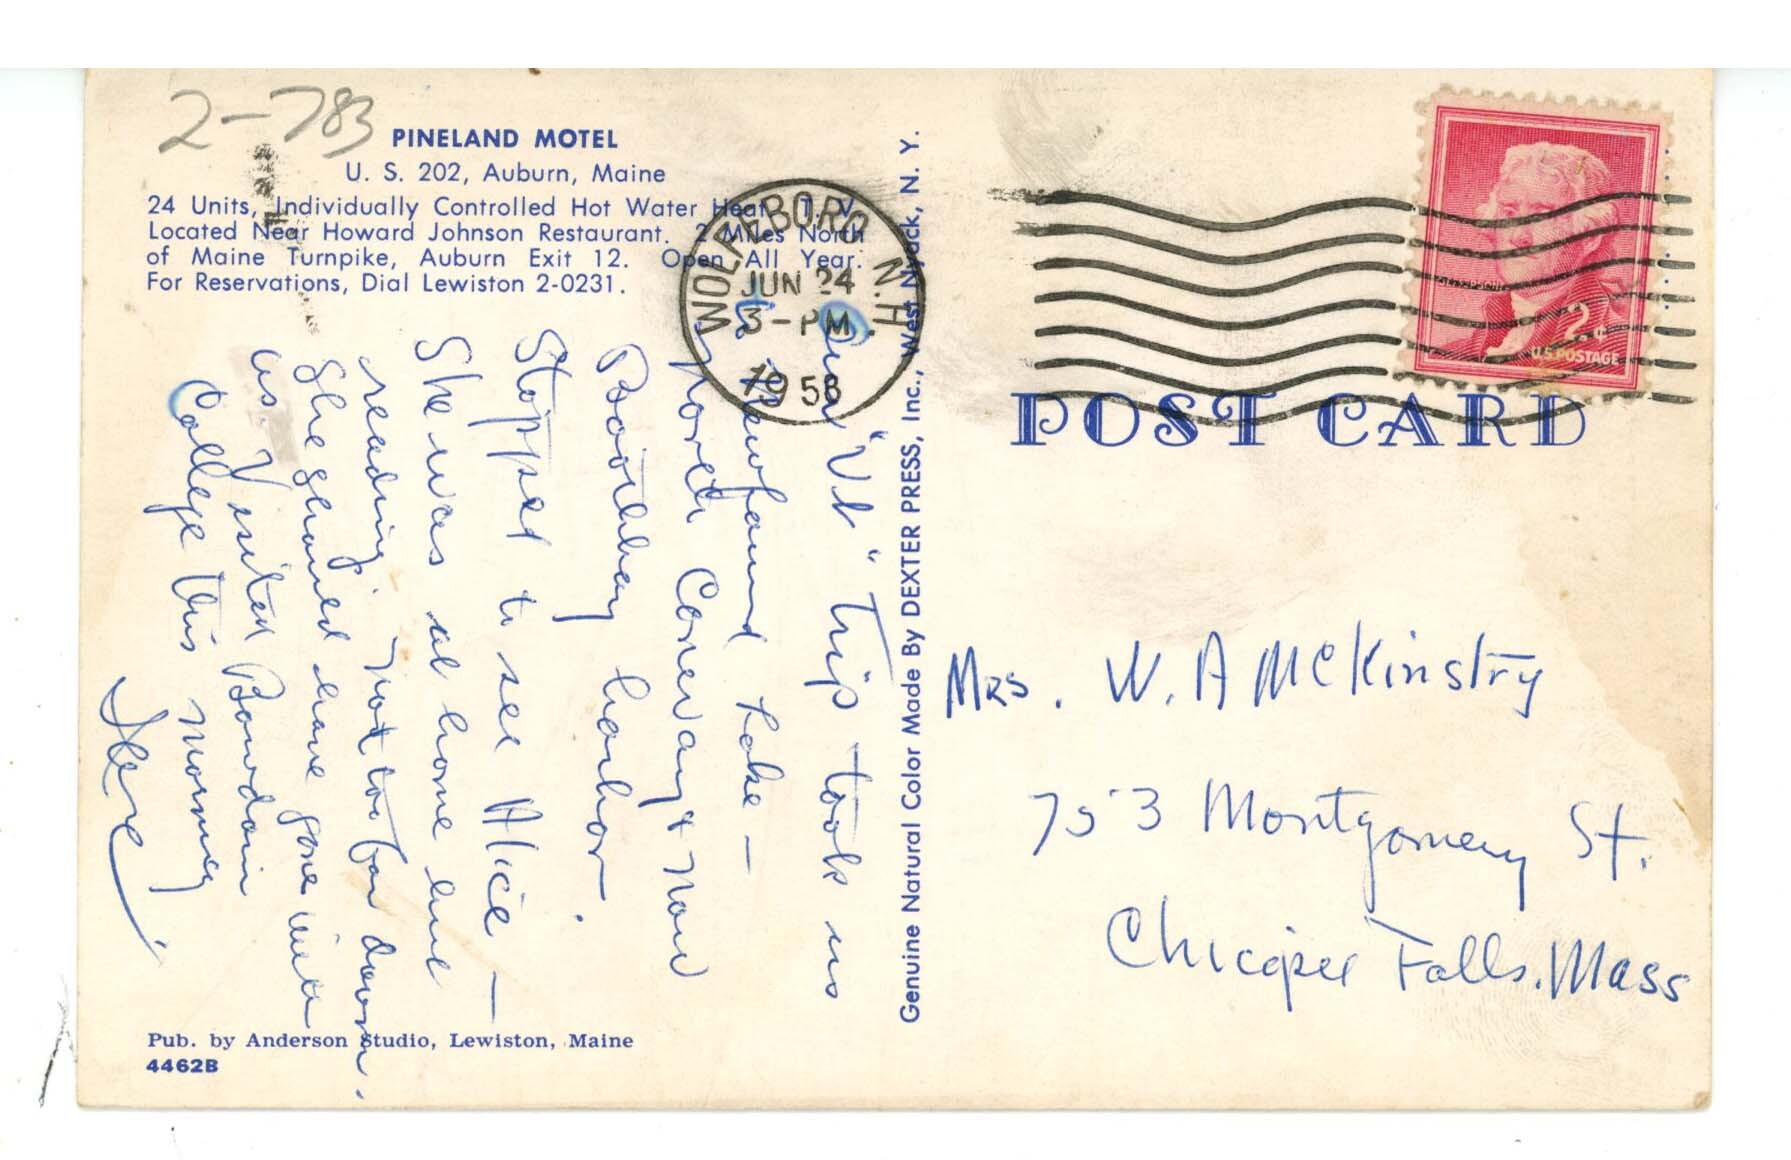 2-783
PINELAND MOTEL
U. S. 202, Auburn, Maine
24 Units, Individually Controlled Hot Water Heat, T. V.
Located Near Howard Johnson Restaurant. 2 Miles North
of Maine Turnpike, Auburn Exit 12. Open All Year.
For Reservations, Dial Lewiston 2-0231.
WOLFEBORO N.H.
JUN 24
3-PM
1958
2¢
U.S. POSTAGE
JEFFERSON
POST CARD
Genuine Natural Color Made By DEXTER PRESS, Inc., West Nyack, N. Y.
Our "V" Trip took us
to Newfound Lake -
North Conway & now
Boothbay harbor.
Stopped to see Alice -
She was at home and
reading, not too far down.
She should have gone with
us Visited Bowdoin
College this morning
Mrs. W. A McKinstry
753 Montgomery St.
Chicopee Falls. Mass
Pub. by Anderson Studio, Lewiston, Maine
4462B